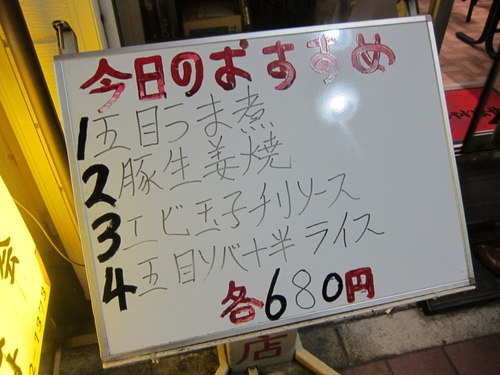 今日のおすすめ
1五目うま煮
2豚生姜焼
3エビ玉子チリソース
4五目ソバ十半ライス
各680円
店